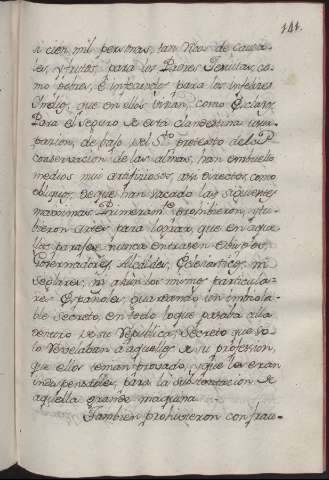 141.
s cien mil personas, tan Ricos de cauda-
les, y frutos para los Padres Jesuitas, co-
mo pobres, é infecundos para los infelices
Indios, que en ellos vivian, como Esclavos.
Para el seguro de esta clandestina usur-
pacion, de bajo del Sto. pretexto de la
conservacion de las almas, han embuelto
medios mui artificiosos, asi directos, como
obliquos, de que han sacado las siguientes
maximas. Primeramte. prohibieron, y tu-
bieron artes para lograr, que en aque
llos parajes nunca entrasen Obispos,
Governadores, Alcaldes, Eclesiasticos, ni
Seglares, ni aun los mismos particula-
res Españoles, guardando un inviola-
ble secreto, en todo lo que pasaba alla
dentro de su Republica; Secreto que so-
lo revelaban a aquellos de su profesion,
que ellos tenian provado, y que les eran
indispensables, para la subsistencia de
aquella grande maquina.
Tambien prohibieron con frau-